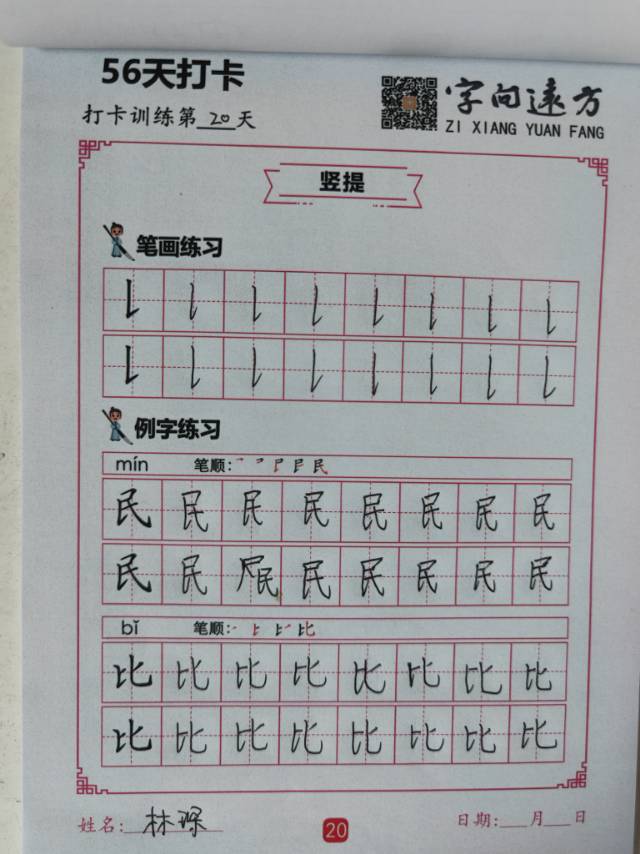 56天打卡
打卡训练第20天
字向遠方
ZI XIANG YUAN FANG
竖提
笔画练习
例字练习
mín 笔顺:
民 民 民 民 民 民 民 民
民 民 民 民 民 民 民 民
bǐ 笔顺:
比 比 比 比 比 比 比 比
比 比 比 比 比 比 比 比
姓名: 林琛 20 日期:___月___日